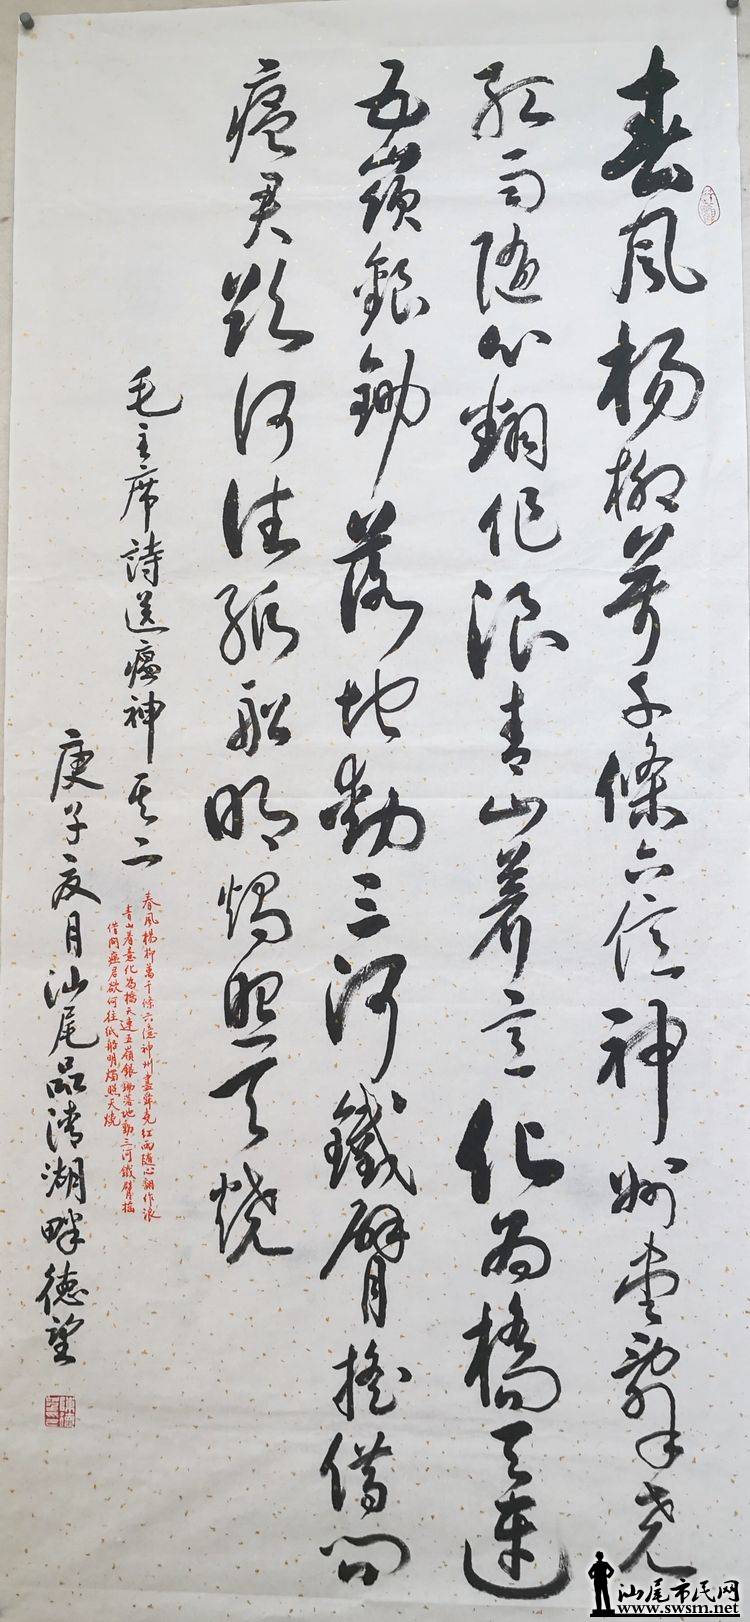 春風楊柳萬千條六億神州盡舜堯
紅雨隨心翻作浪青山着意化為橋天連
五嶺銀鋤落地動三河鐵臂搖借問
瘟君欲何往紙船明燭照天燒
毛主席詩送瘟神其二
春風楊柳萬千條六億神州盡舜堯紅雨隨心翻作浪
青山着意化為橋天連五嶺銀鋤落地動三河鐵臂搖
借問瘟君欲何往紙船明燭照天燒
庚子夏月汕尾品清湖畔德望
汕尾市民网
www.swsm.net